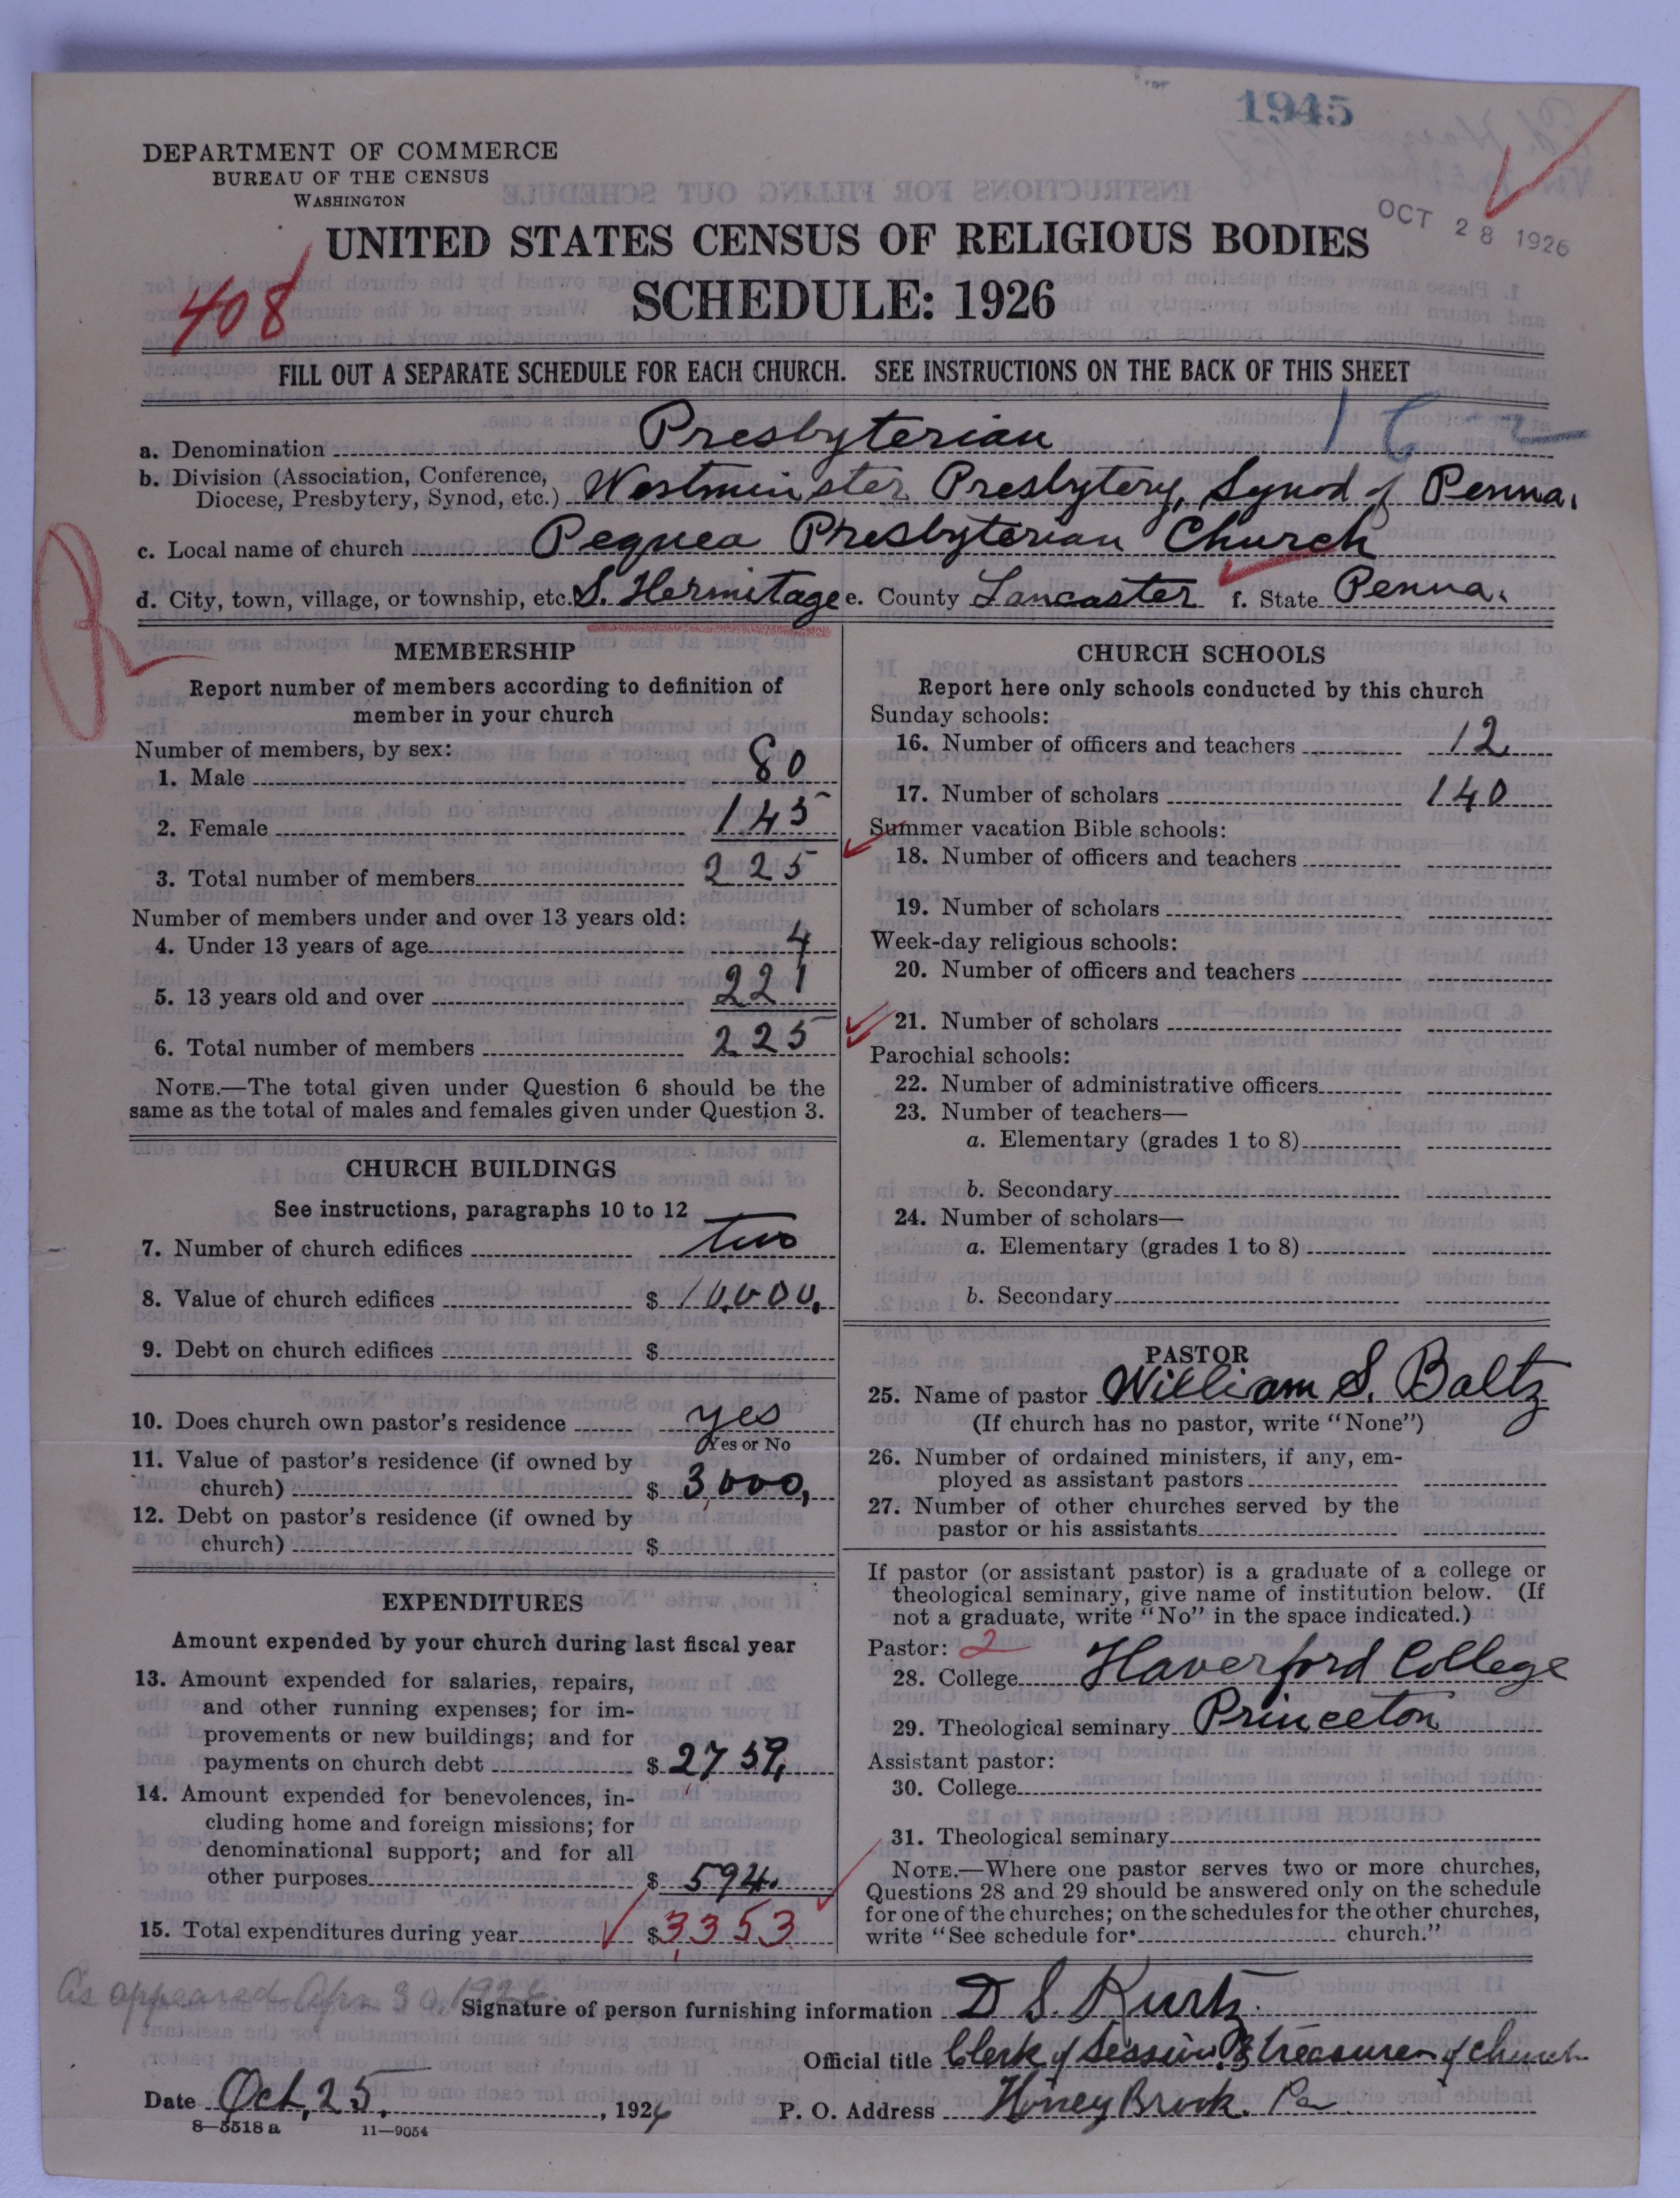 1945
DEPARTMENT OF COMMERCE
BUREAU OF THE CENSUS
WASHINGTON
OCT 28 1926
UNITED STATES CENSUS OF RELIGIOUS BODIES
408
SCHEDULE: 1926
FILL OUT A SEPARATE SCHEDULE FOR EACH CHURCH. SEE INSTRUCTIONS ON THE BACK OF THIS SHEET
a. Denomination Presbyterian
b. Division (Association, Conference,
Diocese, Presbytery, Synod, etc.) Westminster Presbytery, Synod of Penna.
c. Local name of church Pequea Presbyterian Church
d. City, town, village, or township, etc. S. Hermitage e. County Lancaster f. State Penna.
MEMBERSHIP
Report number of members according to definition of
member in your church
Number of members, by sex:
1. Male 80
2. Female 145
3. Total number of members 225
Number of members under and over 13 years old:
4. Under 13 years of age 4
5. 13 years old and over 221
6. Total number of members 225
NOTE.—The total given under Question 6 should be the
same as the total of males and females given under Question 3.
CHURCH BUILDINGS
See instructions, paragraphs 10 to 12
7. Number of church edifices two
8. Value of church edifices $ 10,000.
9. Debt on church edifices $
10. Does church own pastor's residence yes
Yes or No
11. Value of pastor's residence (if owned by
church) $ 3,000,
12. Debt on pastor's residence (if owned by
church) $
EXPENDITURES
Amount expended by your church during last fiscal year
13. Amount expended for salaries, repairs,
and other running expenses; for im-
provements or new buildings; and for
payments on church debt $ 2759,
14. Amount expended for benevolences, in-
cluding home and foreign missions; for
denominational support; and for all
other purposes $ 594.
15. Total expenditures during year $ 3,353
CHURCH SCHOOLS
Report here only schools conducted by this church
Sunday schools:
16. Number of officers and teachers 12
17. Number of scholars 140
Summer vacation Bible schools:
18. Number of officers and teachers
19. Number of scholars
Week-day religious schools:
20. Number of officers and teachers
21. Number of scholars
Parochial schools:
22. Number of administrative officers
23. Number of teachers—
a. Elementary (grades 1 to 8)
b. Secondary
24. Number of scholars—
a. Elementary (grades 1 to 8)
b. Secondary
PASTOR
25. Name of pastor William S. Baltz
(If church has no pastor, write "None")
26. Number of ordained ministers, if any, em-
ployed as assistant pastors
27. Number of other churches served by the
pastor or his assistants
If pastor (or assistant pastor) is a graduate of a college or
theological seminary, give name of institution below. (If
not a graduate, write "No" in the space indicated.)
Pastor: 2
28. College Haverford College
29. Theological seminary Princeton
Assistant pastor:
30. College
31. Theological seminary
NOTE.—Where one pastor serves two or more churches,
Questions 28 and 29 should be answered only on the schedule
for one of the churches; on the schedules for the other churches,
write "See schedule for church."
As appeared Apr. 30, 1926.
Signature of person furnishing information D S. Kurtz
Official title Clerk of Session & treasurer of church
Date Oct, 25, 1926
P. O. Address Honey Brook. Pa
8—5518 a 11—9054